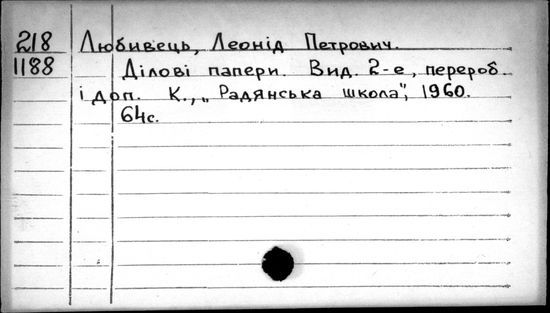 218 Любивець, Леонід Петрович.
1188 Ділові папери. Вид. 2-е, перероб.
і доп. К., „Радянська школа", 1960.
64с.